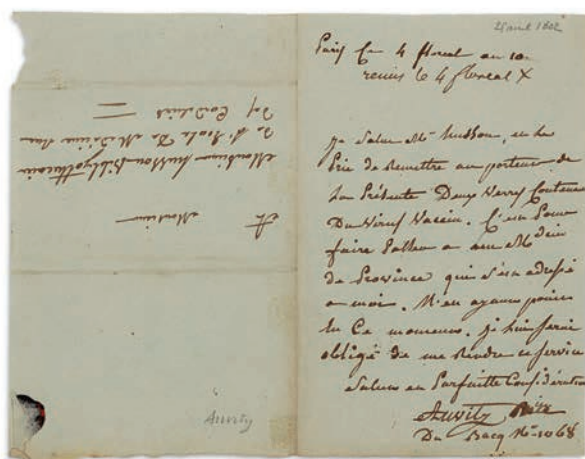 25 avril 1802
Paris Ce 4 floreal an 10.
remis le 4 floreal X
Je Salue Mr husson, et Le
Prie de Remettre au porteur de
La Présente Deux Verres Contenant
Du Virus Vaccin. C'est Pour
faire Passer a un Mdein
de Province qui s'est adressé
a moi. N'en ayant point
En Ce moment. je Lui serai
obligé de me Rendre ce service
Salut et Parfaitte Considération
Auvity Rue
Du Bacq No 1068
A Monsieur
Monsieur husson Bibliothecaire
de l'Ecole De Medecine Rue
des Cordeliers
Auvity